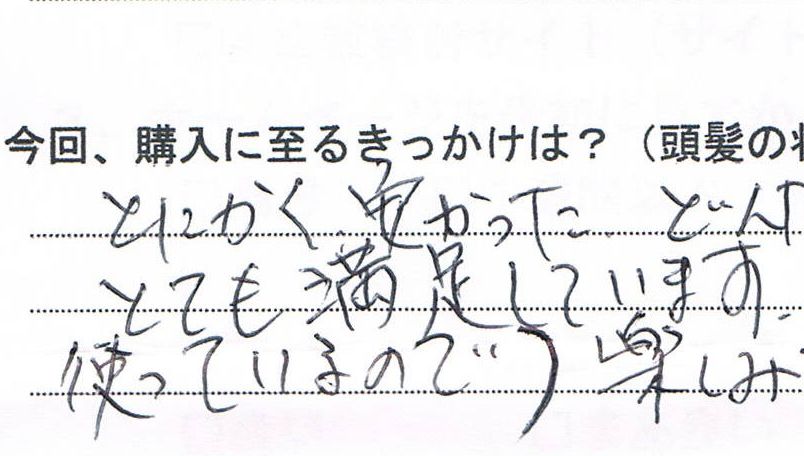 今回、購入に至るきっかけは？（頭髪の
とにかく安かった。どん
とても満足しています。
使っているので、楽しみ